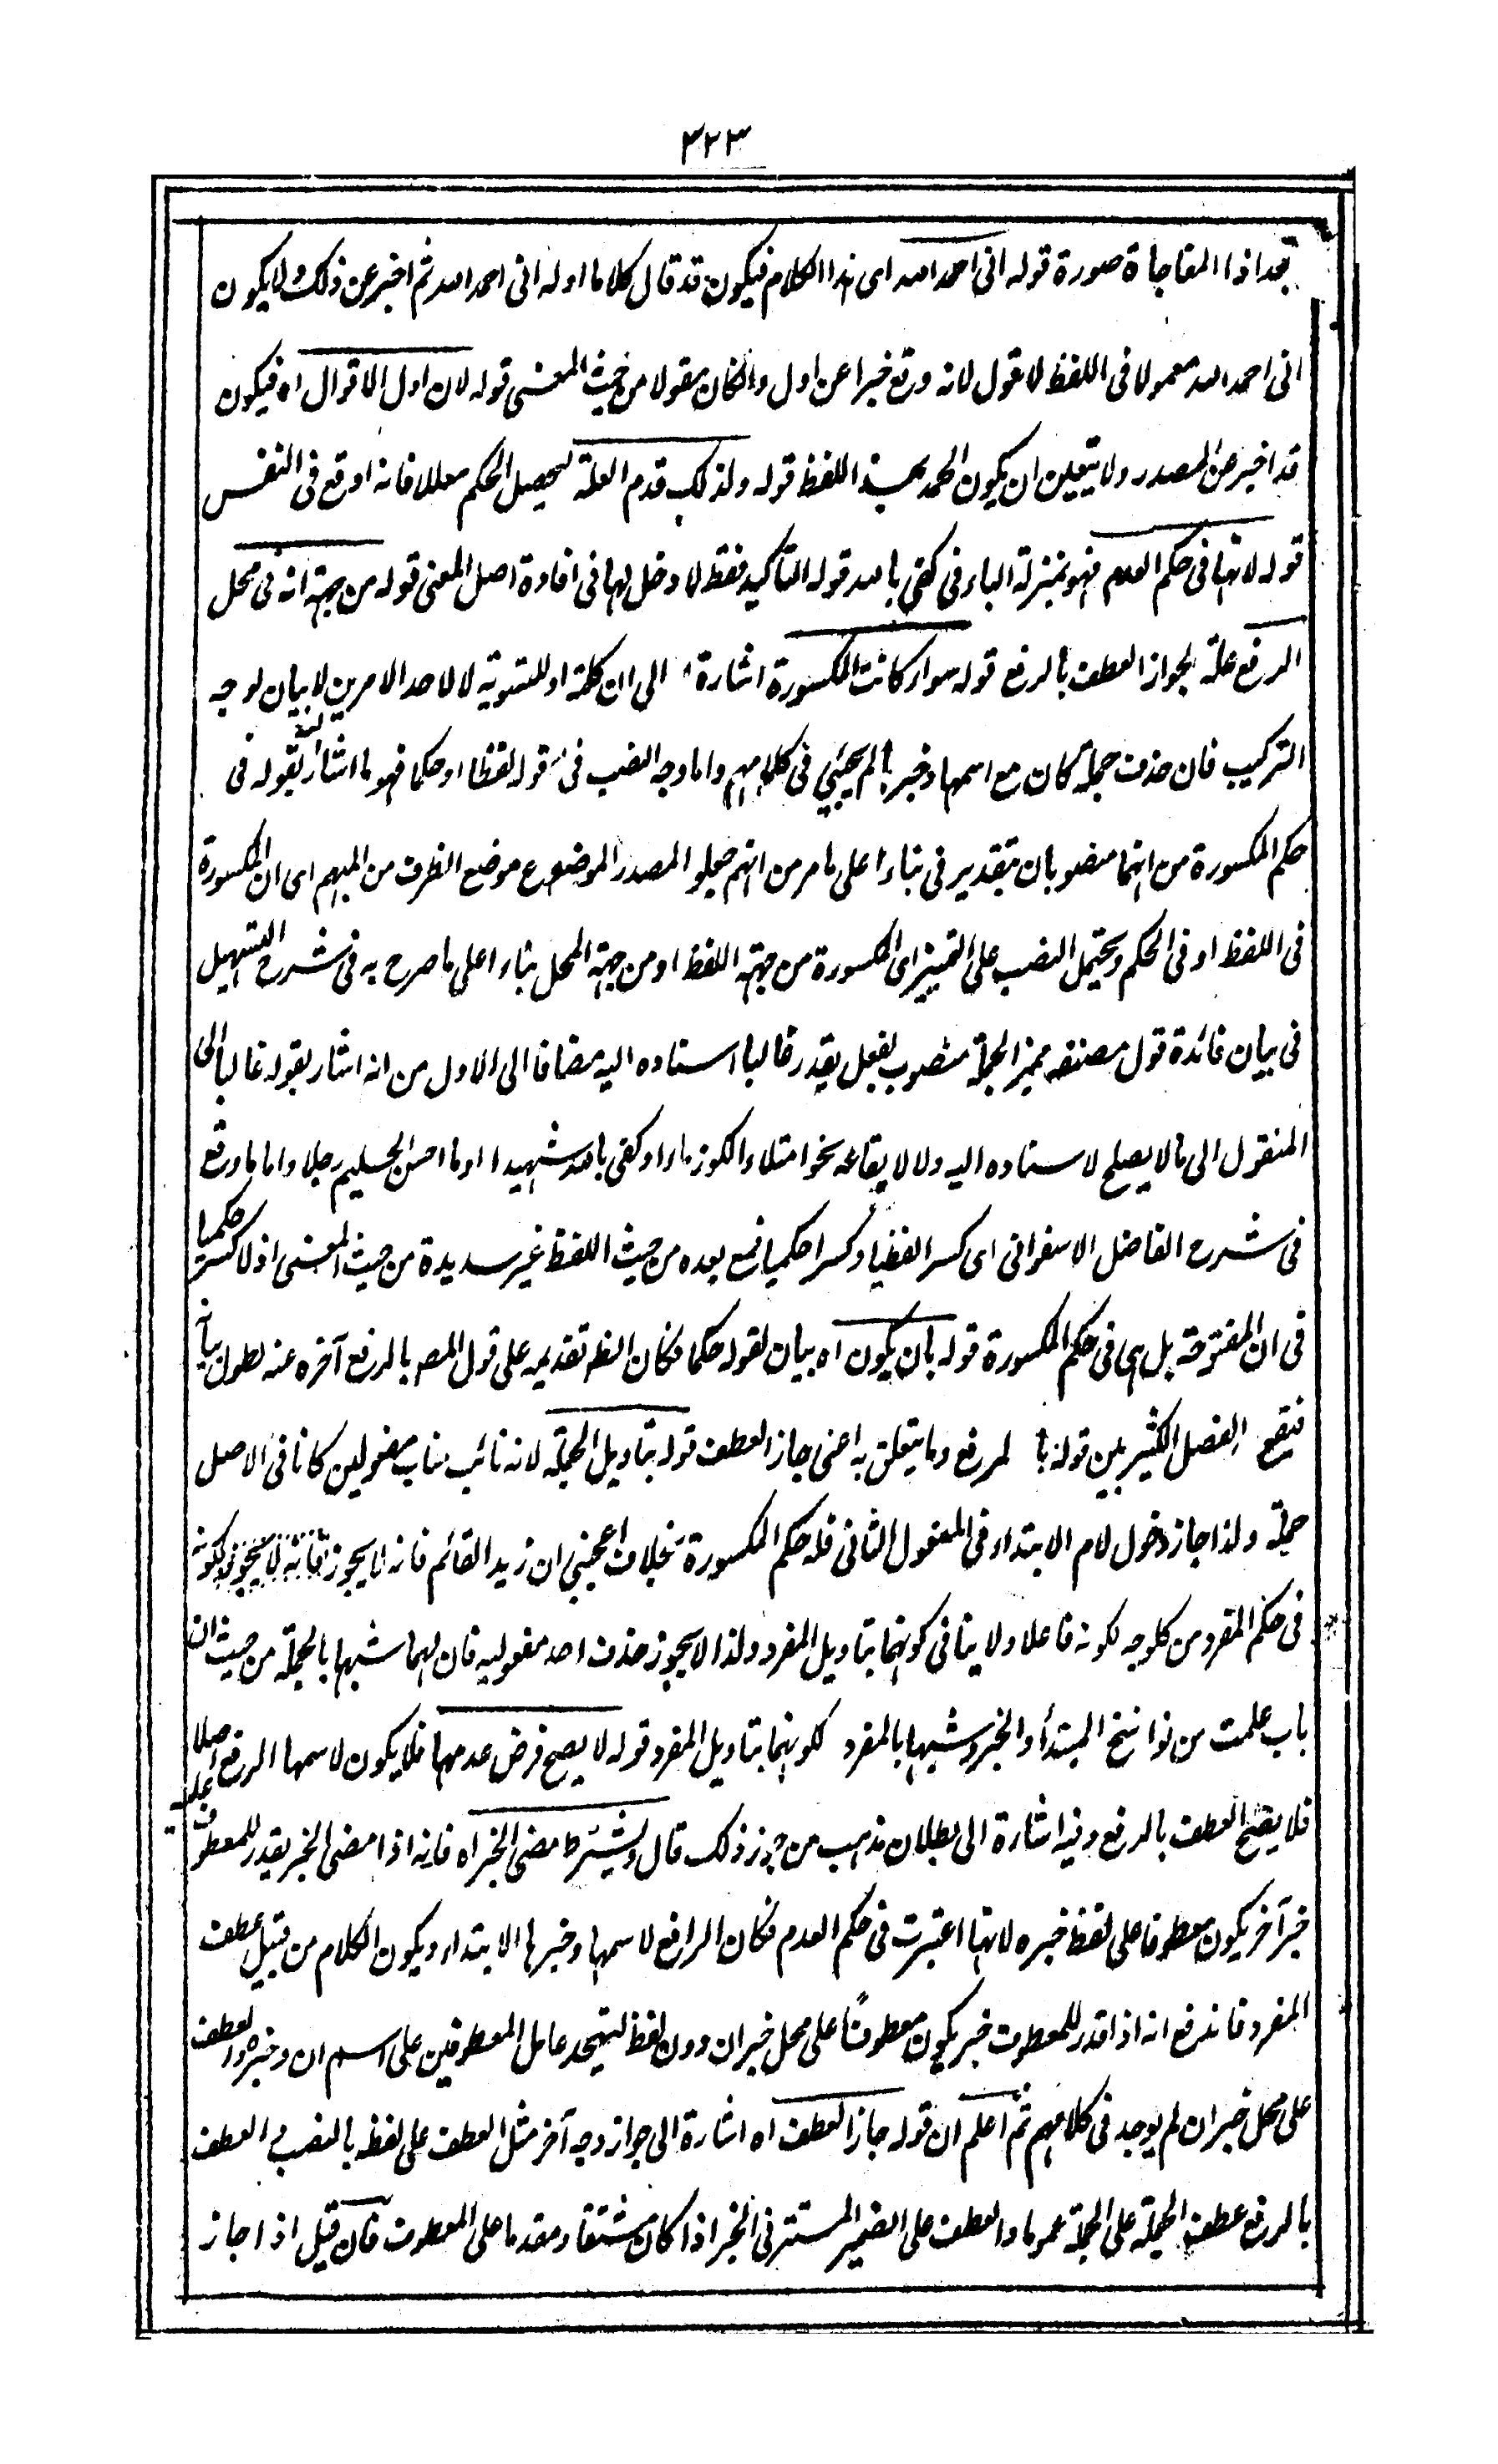 ٣٢٣
بعد اذا المفاجاة صورة قوله انى احمد الله اى هذا الكلام فيكون قد قال كلاما اوله انى احمد الله ثم اخبر عن ذلك ولا يكون
انى احمد الله معمولا فى اللفظ لا قول لانه وقع خبرا عن اول وان كان مقولا من حيث المعنى قوله لان اول الاقوال اه فيكون
قد اخبر عن المصدر ولا يتعين ان يكون الحمد بهذا اللفظ قوله ولذلك قدم العلة ليحصل الحكم معللا فانه اوقع فى النفس
قوله لانها فى حكم العدم فهو بمنزلة الباء فى كفى بالله قوله التأكيد فقط لا دخل لها فى افادة اصل المعنى قوله من جهة انه فى محل
الرفع علة لجواز العطف بالرفع قوله سواء كانت المكسورة اشارة الى ان كلمة او للتسوية لا لاحد الامرين لا بيان لوجه
التركيب فان حذف جملة كان مع اسمها وخبرها لم يجئ فى كلامهم واما وجه النصب فى قوله لفظا او حكما فهو ما اشار اليه بقوله فى
حكم المكسورة من انهما منصوبان بتقدير فى بناءا على ما مر من انهم جعلوا المصدر الموضوع موضع الظرف من المبهم اى ان المكسورة
فى اللفظ او فى الحكم ويحتمل النصب على التمييز اى المكسورة من جهة اللفظ او من جهة المحل بناءا على ما صرح به فى شرح التسهيل
فى بيان فائدة قول مصنفه مميز الجملة منصوب بفعل يقدر غالبا اسناده اليه مضافا الى الاول من انه اشار بقوله غالبا الى
المنقول الى ما لا يصلح لاسناده اليه ولا لايقاعه نحو امتلاء الكوز ماءا وكفى بالله شهيدا او ما احسن الحليم رجلا واما ما وقع
فى شرح الفاضل الاسفرائى اى كسرا لفظيا او كسرا حكميا فمع بعده من حيث اللفظ غير سديدة من حيث المعنى اذ لا كسر حكميا
فى ان المفتوحة بل هى فى حكم المكسورة قوله بان يكون اه بيان لقوله حكما فكان الظ تقديمه على قول المص بالرفع آخره عنه لطول بيانه
فيقع الفصل الكثير بين قوله بالرفع وما يتعلق به اعنى جاز العطف قوله بتاويل الجملة لانه نائب مناب مفعولين كانا فى الاصل
جملة ولذا جاز دخول لام الابتداء فى المفعول الثانى فله حكم المكسورة بخلاف اعجبنى ان زيدا لقائم فانه لا يجوز لكونه
فى حكم المفرد من كل وجه لكونه فاعلا ولا ينافى كونهما بتاويل المفرد ولذا لا يجوز حذف احد مفعوليه فان لهما شبها بالجملة من حيث ان
باب علمت من نواسخ المبتدأ والخبر وشبها بالمفرد لكونهما بتاويل المفرد قوله لا يصح فرض عدمها فلا يكون لاسمها الرفع اصلا
فلا يصح العطف بالرفع وفيه اشارة الى بطلان مذهب من جوز ذلك قال ويشترط مضى الخبر اه فانه اذا مضى الخبر يقدر للمعطوف عليه
خبر آخر يكون معطوفا على لفظ خبره لانها اعتبرت فى حكم العدم فكان الرافع لاسمها وخبرها الابتداء ويكون الكلام من قبيل عطف
المفرد فاندفع انه اذا قدر للمعطوف خبر يكون معطوفا على محل خبر ان دون لفظ ليتحد عامل المعطوفين على اسم ان وخبره والعطف
على محل خبر ان لم يوجد فى كلامهم ثم اعلم ان قوله جاز العطف اه اشارة الى جواز وجه آخر مثل العطف على لفظه بالنصب او العطف
بالرفع عطف الجملة على الجملة عموما والعطف على الضمير المستتر فى الخبر اذا كان مشتقا ومقدما على المعطوف فان قيل اذا جاز